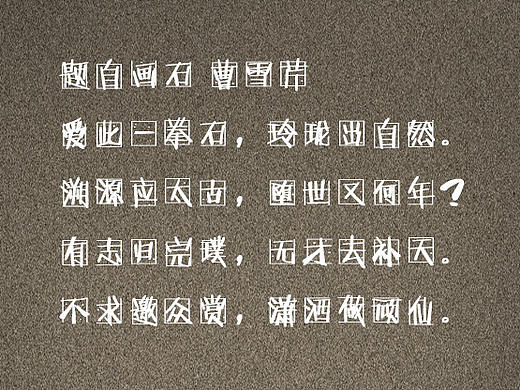 题自画石 曹雪芹
爱此一拳石，玲珑出自然。
溯源应太古，堕世又何年？
有志归完璞，无才去补天。
不求邀众赏，潇洒做顽仙。